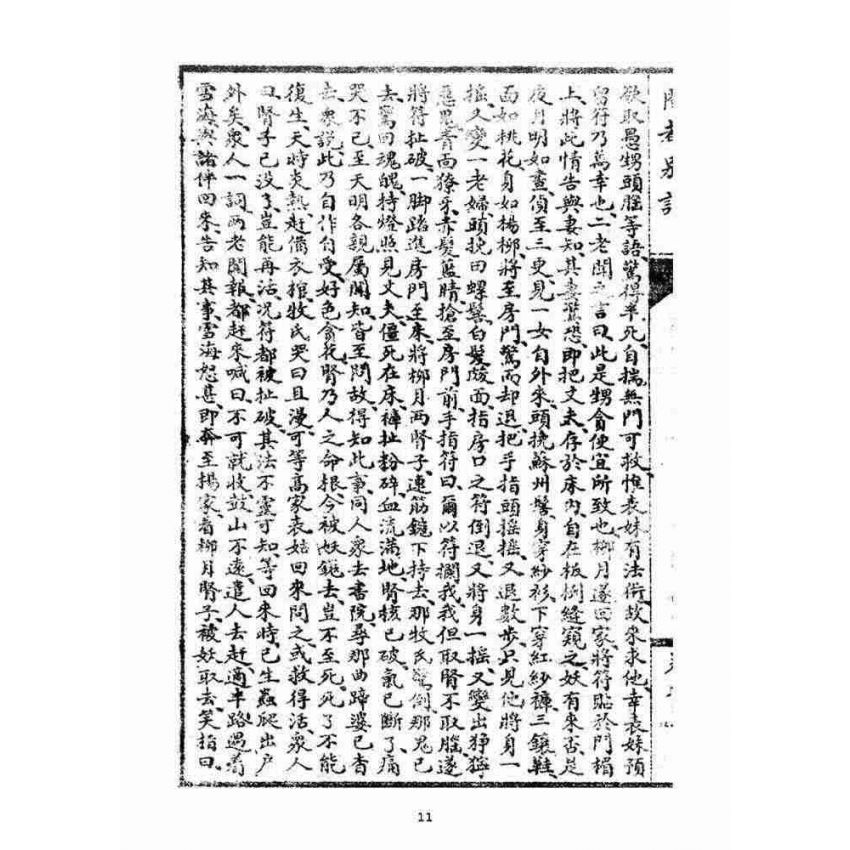 閩都別記
欲取愚甥頭腦等語驚得半死自揣無門可救惟表妹有法術故來求他幸表妹預
留符乃萬幸也二老聞之言曰此是甥貪便宜所致也柳月遂回家將符貼於門楣
上將此情告與妻知其妻驚恐即把丈夫存於床內自在板捌縫窺之妖有來否是
夜月明如晝侦至三更見一女自外來頭挽蘇州髻身穿紗衫下穿紅紗褲三鑲鞋
面如桃花身如楊柳將至房門驚而却退把手指頭搖搖又退數步只見他將身一
搖又變一老婦頭挽田螺髻白髮皺面指房口之符倒退又將身一搖又變出猙獰
惡鬼青面獠牙赤髮藍睛搶至房門前手指符曰爾以符攔我我但取腎不取腦遂
將符扯破一脚踏進房門至床將柳月兩腎子連筋鏡下持去那牧氏驚倒那鬼已
去驚回魂魄持燈照見丈夫僵死在床褲扯粉碎血流滿地腎核已破氣已斷了痛
哭不已至天明各親屬聞知皆至問故得知此事同人衆去書院尋那曲蹄婆已杳
去衆說此乃自作自受好色貪花腎乃人之命根今被妖鏡去豈不至死死了不能
復生天時炎熱赶備衣棺牧氏哭曰且漫可等高家表姑回來問之或救得活衆人
曰腎子已没了豈能再活况符都被扯破其法不靈可知等回來時已生蟲爬出户
外矣衆人一詞两老聞報都赶來喊曰不可就收鼓山不遠遣人去赶適半路遇着
雪海與諸伴回來告知其事雪海怒甚即奔至楊家看柳月腎子被妖取去笑指曰
11